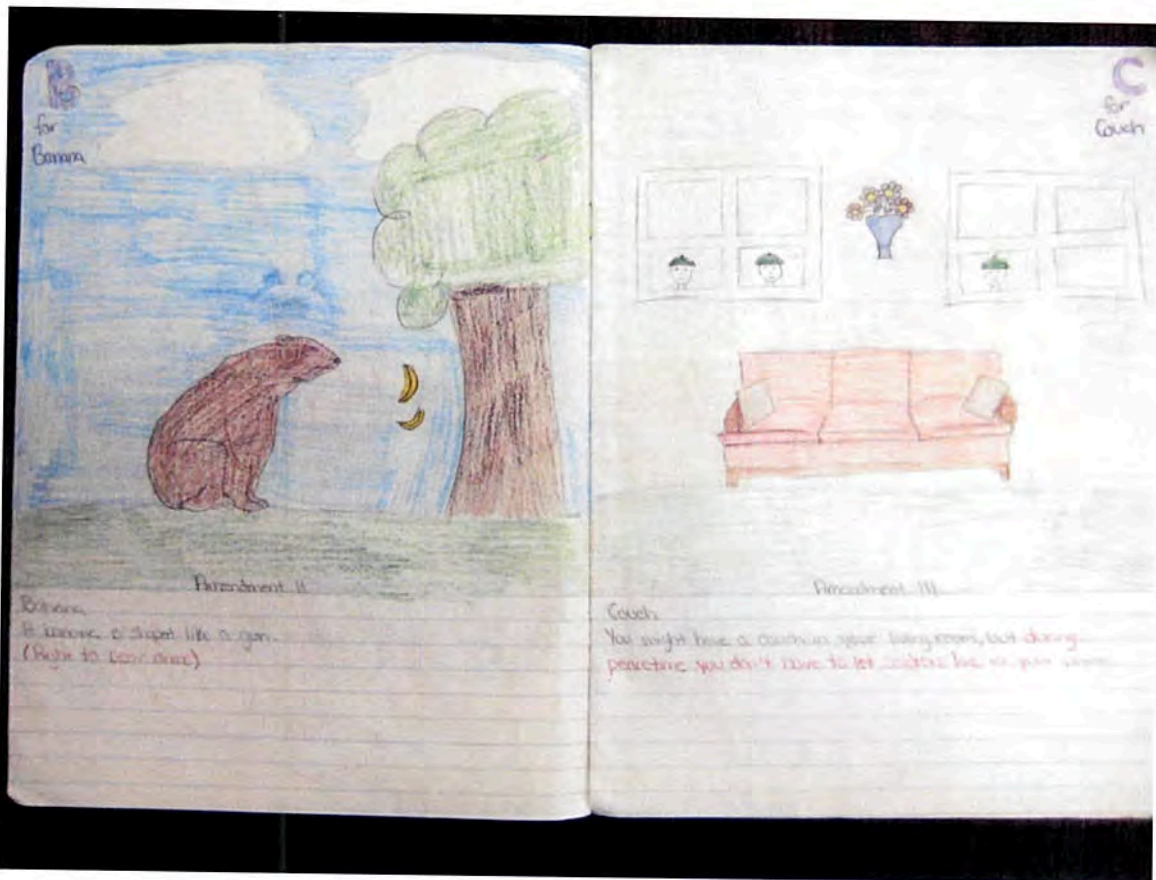 B
for
Banana
Amendment II
Banana
A banana is shaped like a gun.
(Right to bear arms)
C
for
Couch
Amendment III
Couch
You might have a couch in your living room, but during
peacetime you don't have to let soldiers live in your